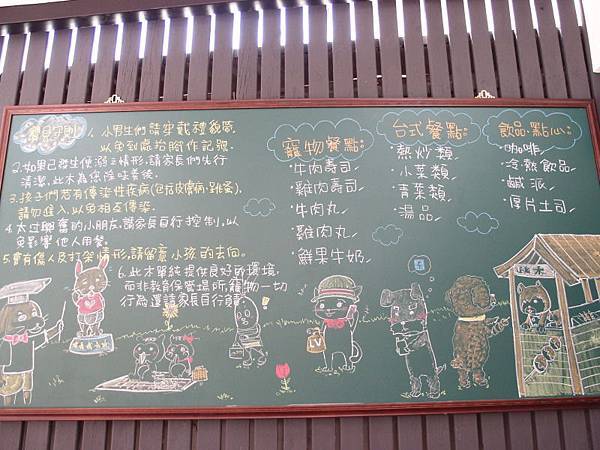 寵兒守則
1. 小男生們請穿戴禮貌帶,
以免到處抬腳作記號.
2. 如果已發生便溺之情形,請家長們先行
清潔,此木為您除味善後.
3. 孩子們若有傳染性疾病(包括皮膚病.跳蚤),
請勿進入,以免相互傳染.
4. 太過興奮的小朋友,請家長自行控制,以
免影響他人用餐.
5. 會有傷人及打架情形,請留意小孩的去向.
6. 此木單純提供良好的環境,
而非教育保管場所,寵物一切
行為還請家長自行負責.
寵物餐點:
·牛肉壽司
·雞肉壽司
·牛肉丸
·雞肉丸
·鮮果牛奶
台式餐點:
·熱炒類
·小菜類
·青菜類
·湯品
飲品.點心:
·咖啡
·冷.熱飲品
·鹹派
·厚片土司
LV